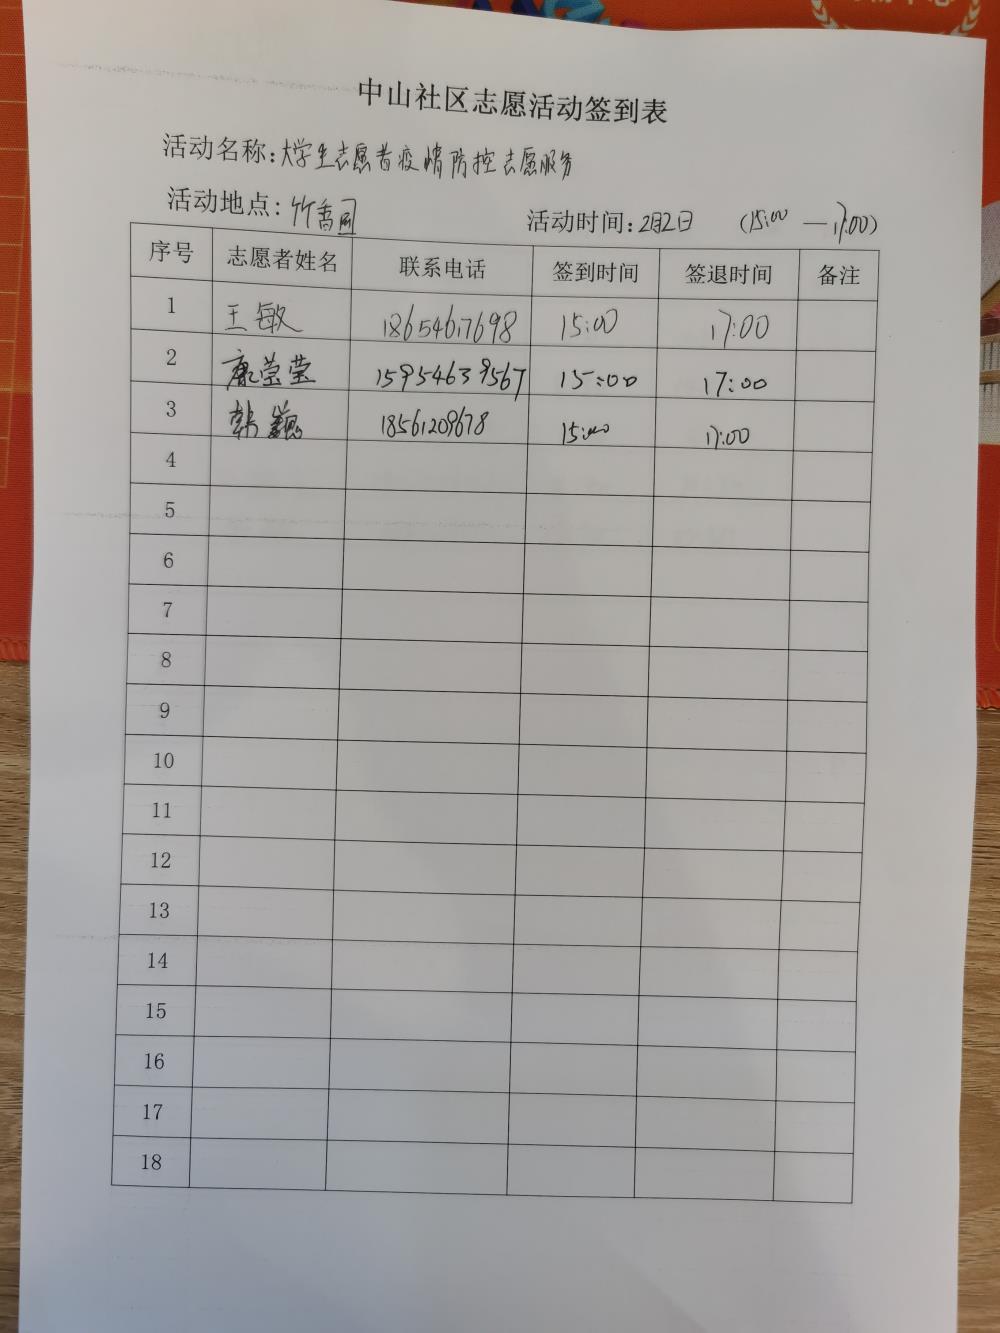 中山社区志愿活动签到表
活动名称:大学生志愿者疫情防控志愿服务
活动地点:竹香园 活动时间:2月2日 (15:00 — 17:00)
序号 志愿者姓名 联系电话 签到时间 签退时间 备注
1 王敏 18654617698 15:00 17:00
2 康莹莹 15954639567 15:00 17:00
3 韩巍 18561209678 15:00 17:00
4
5
6
7
8
9
10
11
12
13
14
15
16
17
18